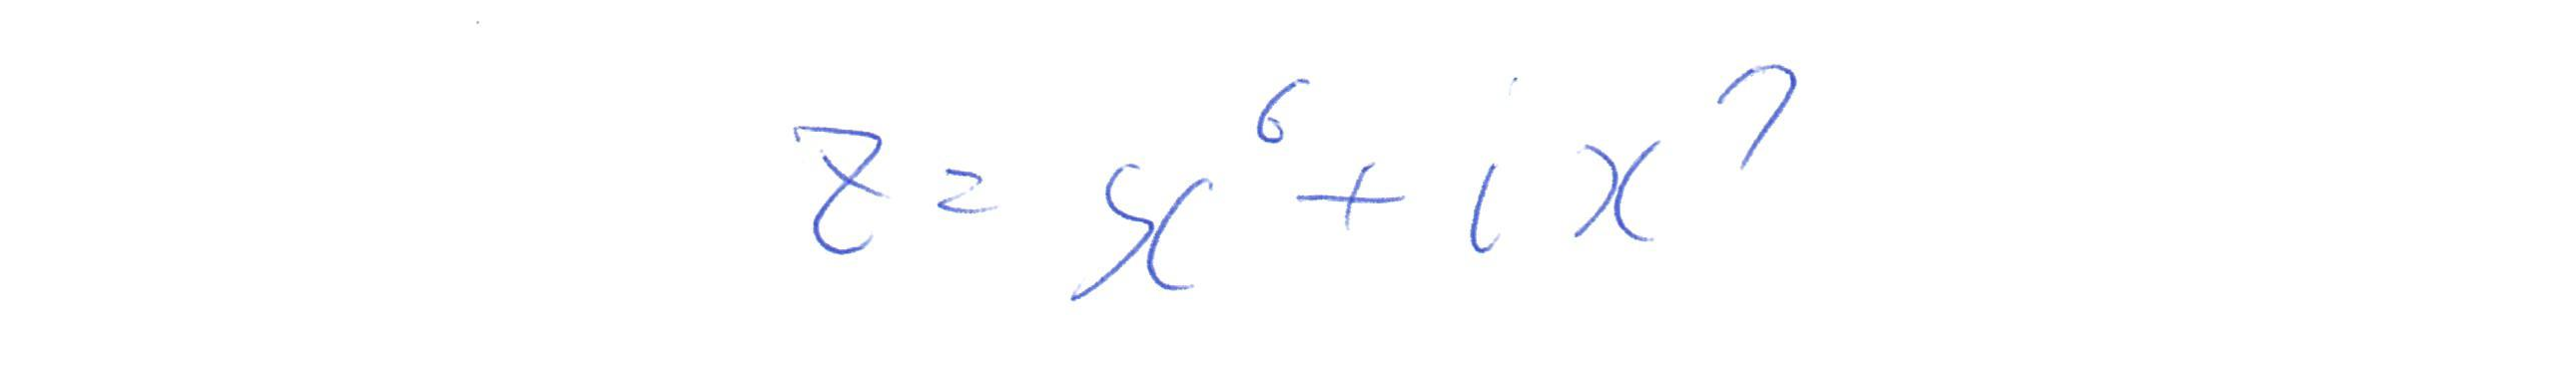 z = x⁶ + i x⁷